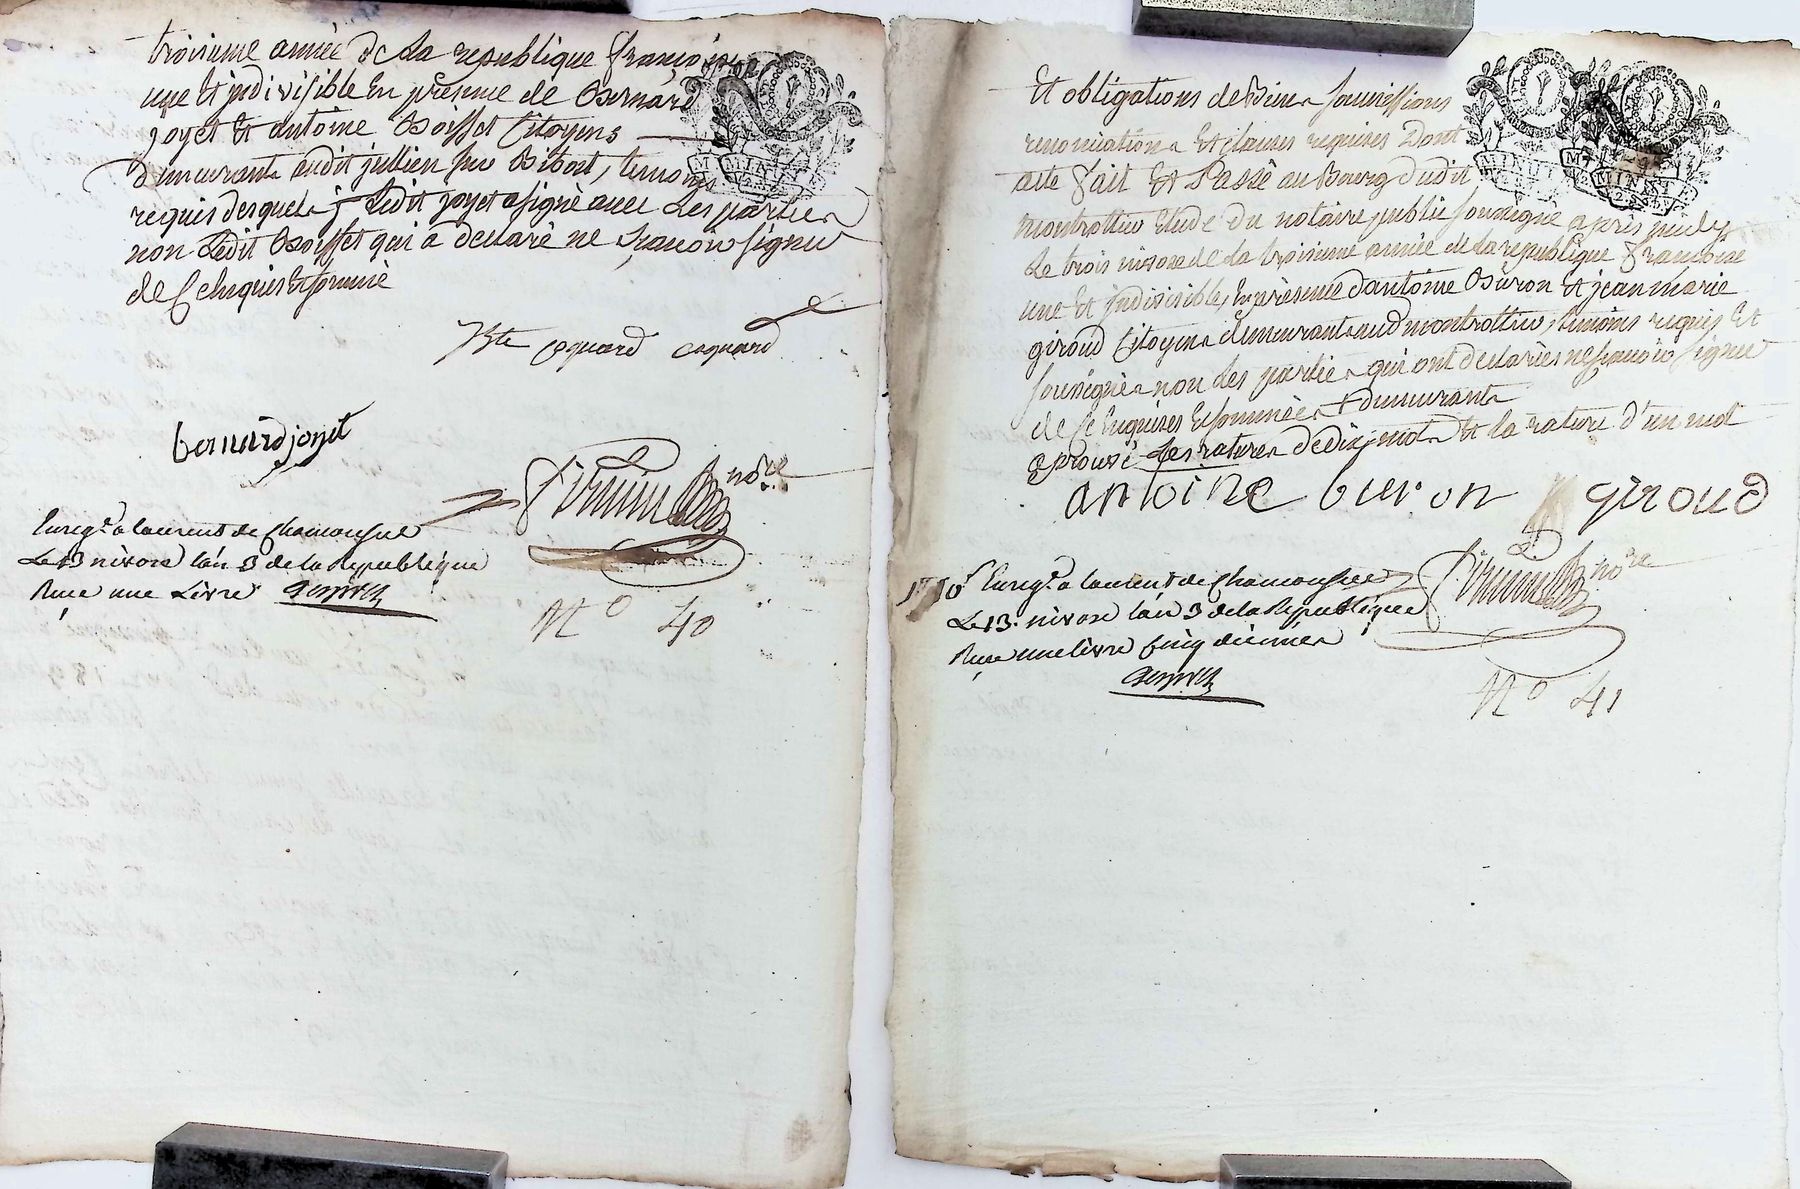 troisieme année de la republique françoise
une Et jndivisible En presence de Bernard
joyet Et antoine Boisset Citoyens
demeurants audit jullien sur Bibost, temoins
requis desquels ledit joyet a signé avec Les parties
non Ledit Boisset qui a declaré ne sçavoir signer
de Ce Enquis Et sommé
coquard coquard
bernard joyet
no.re
Enreg.é a Laurent de Chamousset
Le 13 nivose l'an 3 de la Republique
Reçu une Livre
N.o 40
Et obligations de Biens soumissions
renonciations Et clauses requises Dont
acte fait Et Passé au Bourg dudit
montrottier Etude du notaire public soussigné apres midy
Le trois nivose de la troisieme année de la republique françoise
une Et jndivisible, En presence d'antoine Buron Et jean marie
giroud Citoyens demeurants aud montrottier, temoins requis Et
soussignés non Les parties qui ont declarées ne sçavoir signer
de Ce Enquises Et sommées + demeurants
aprouvé Les ratures de dix mots Et la rature d'un mot
antoine buron giroud
no.re
Enreg.é a Laurent de Chamousset
Le 13. nivose l'an 3 de la Republique
Reçu une livre Cinq decimes
N.o 41